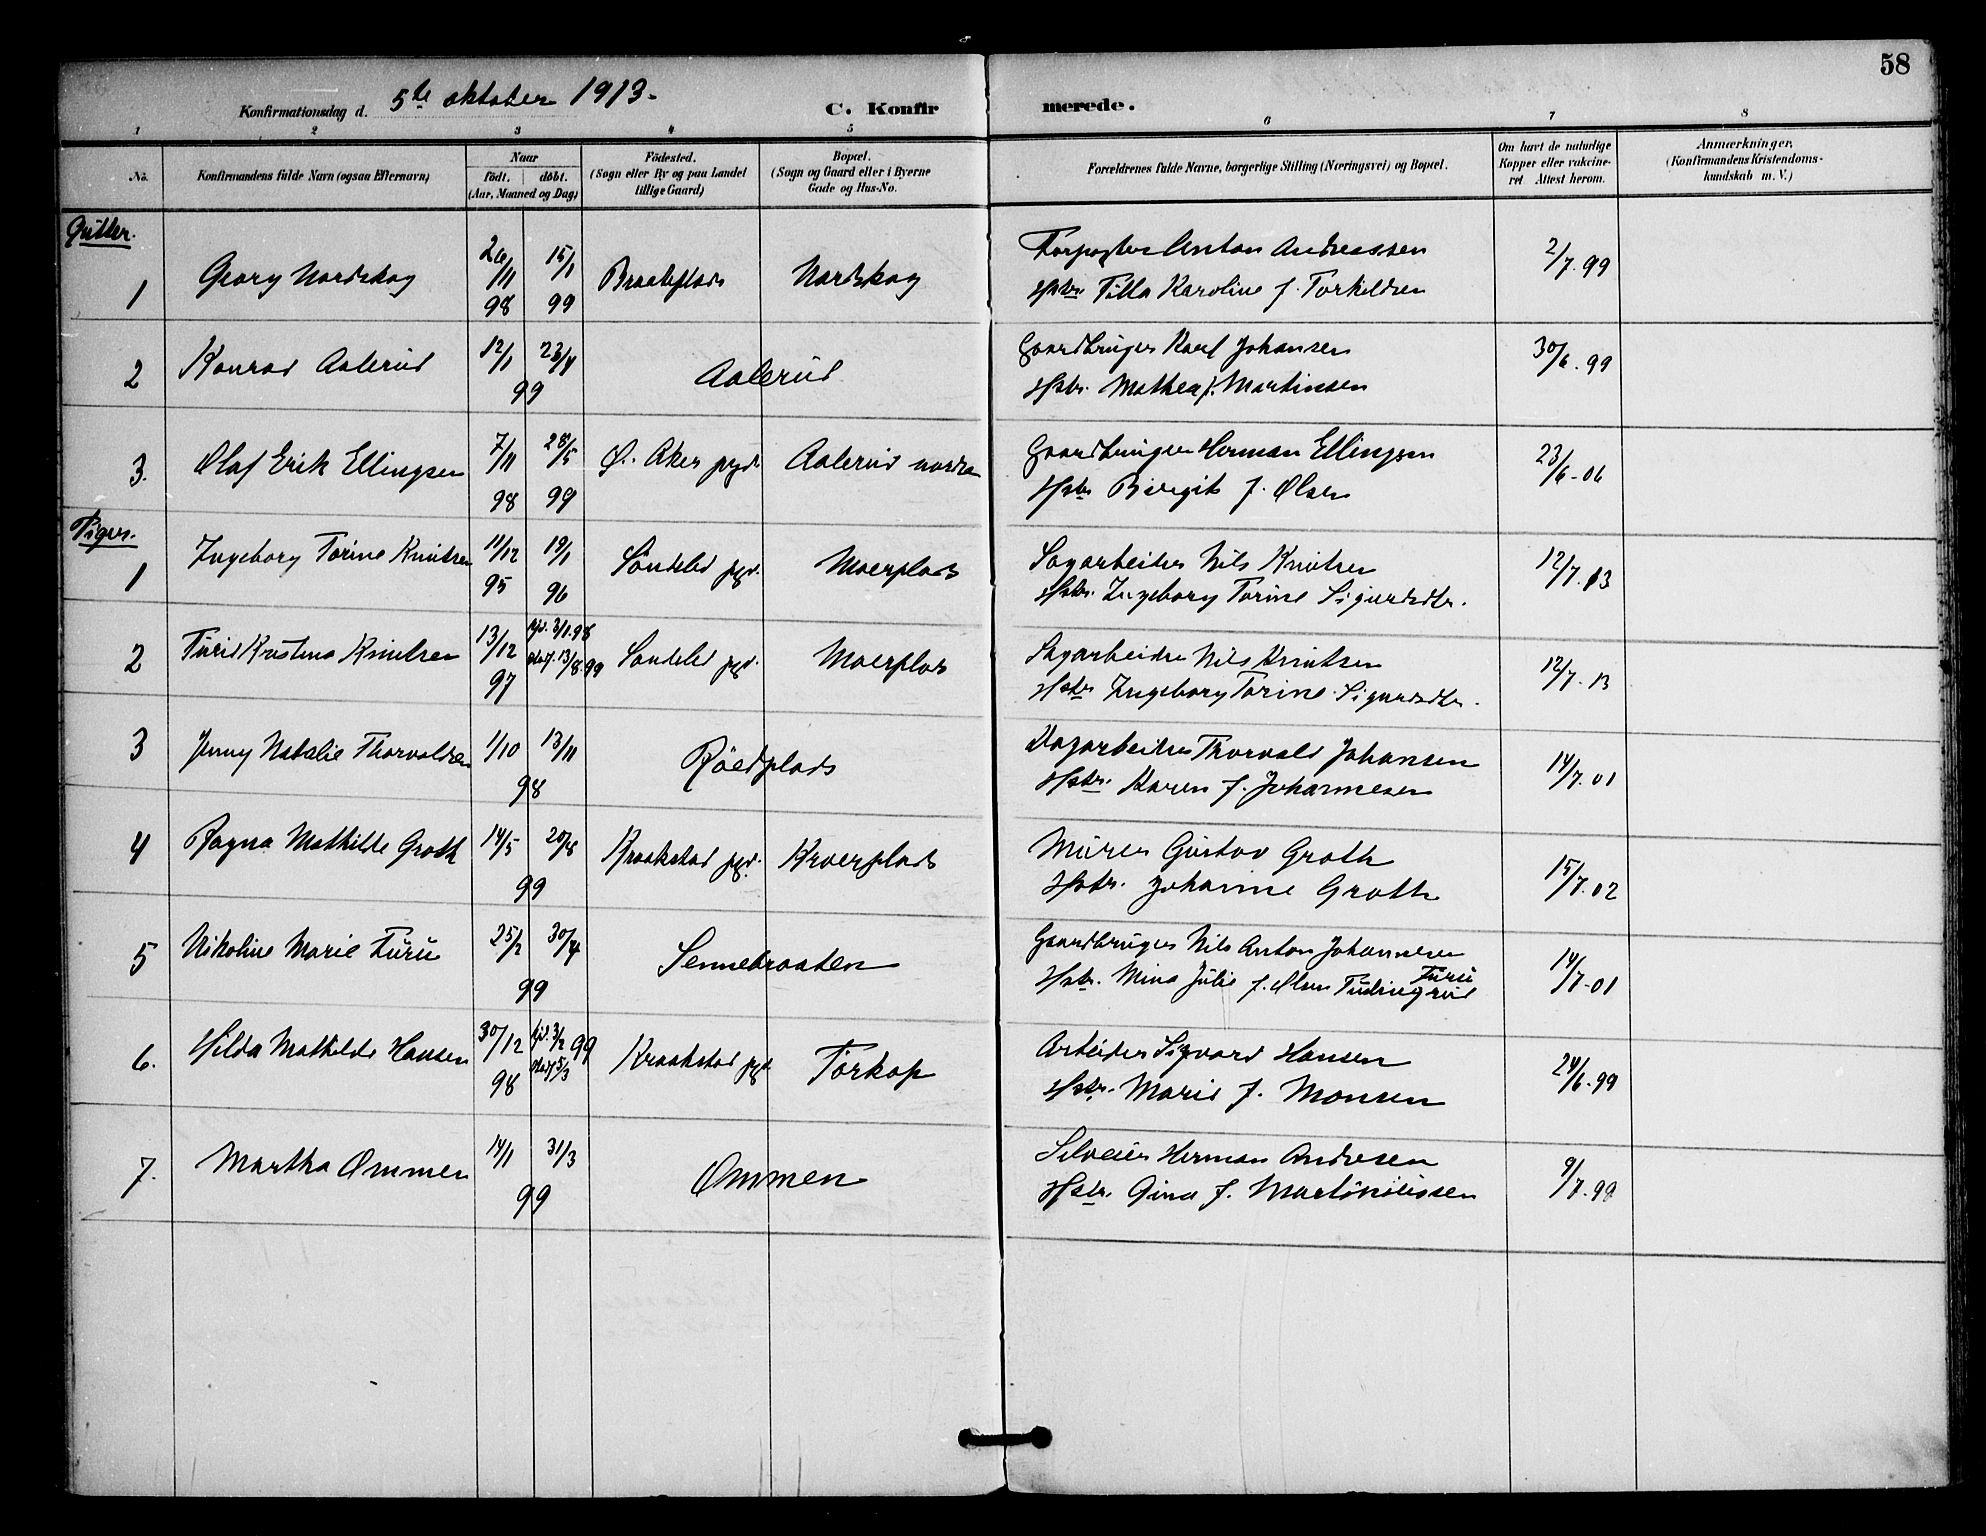 58
Konfirmationsdag d. 5te oktober 1913.
C. Konfirmerede.
1 2 3 4 5 6 7 8
No.
Konfirmandens fulde Navn (ogsaa Efternavn)
Naar
födt. döbt.
(Aar, Maaned og Dag)
Födested.
(Sogn eller By og paa Landet
tillige Gaard)
Bopæl.
(Sogn og Gaard eller i Byerne
Gade og Hus-No.
Forældrenes fulde Navne, borgerlige Stilling (Næringsvei) og Bopæl.
Om havt de naturlige
Kopper eller vakcineret
Attest herom.
Anmærkninger.
(Konfirmandens Kristendomskundskab
m. V.)
Gutter.
1 Georg Nordskog 26/11 98 15/1 99 Braateplads Nordskog
Forpagter Anton Andreassen
Hstr. Tilla Karoline f. Torkildsen
2/7.99
2 Konrad Aalerud 12/1 23/4 99 Aalerud
Gaardbruger Karl Johansen
Hstr. Mathea f. Martinsen
30/6.99
3. Olaf Erik Ellingsen 7/11 98 28/5 99 Ø. Aker pgd. Aalerud nordre
Gaardbruger Herman Ellingsen
Hstr. Birgit f. Olsen
23/6-06
Piger.
1 Ingeborg Torine Knutsen 11/12 95 19/1 96 Söndeled pgd. Moerplads
Sagarbeider Nils Knutsen
Hstr. Ingeborg Torine Sigurdsdtr.
12/7.13
2 Turid Kristina Knutsen 13/12 97 hjd. 3/1.98 stadf. 13/8 99 Söndeled pgd. Moerplads
Sagarbeider Nils Knutsen
Hstr. Ingeborg Torine Sigurdsdtr.
12/7.13
3 Jenny Natalie Thorvaldsen 1/10 13/11 98 Röedplads
Dagarbeider Thorvald Johansen
Hstr. Karen f. Johannesen
14/7.01
4 Ragna Mathilde Groth 14/5 20/8 99 Kraakstad pgd. Kroerplads
Murer Gustav Groth
Hstr. Johanne Groth
15/7.02
5 Nikoline Marie Furu 25/2 30/4 99 Sennebraaten
Gaardbruger Nils Anton Johannesen
Furu
Hstr. Mina Julie f. Olsen
14/7-01
6. Hilda Mathilde Hansen 30/12 98 hjd. 3/2 99 stadf 5/3 Kraakstad pgd. Torkop
Arbeider Sigvard Hansen
Hstr. Marie f. Monsen
24/6.99
7. Martha Ommen 14/1 31/3 99 Ommen
Selveier Herman Andresen
Hstr. Gina f. Martiniussen
9/7.99